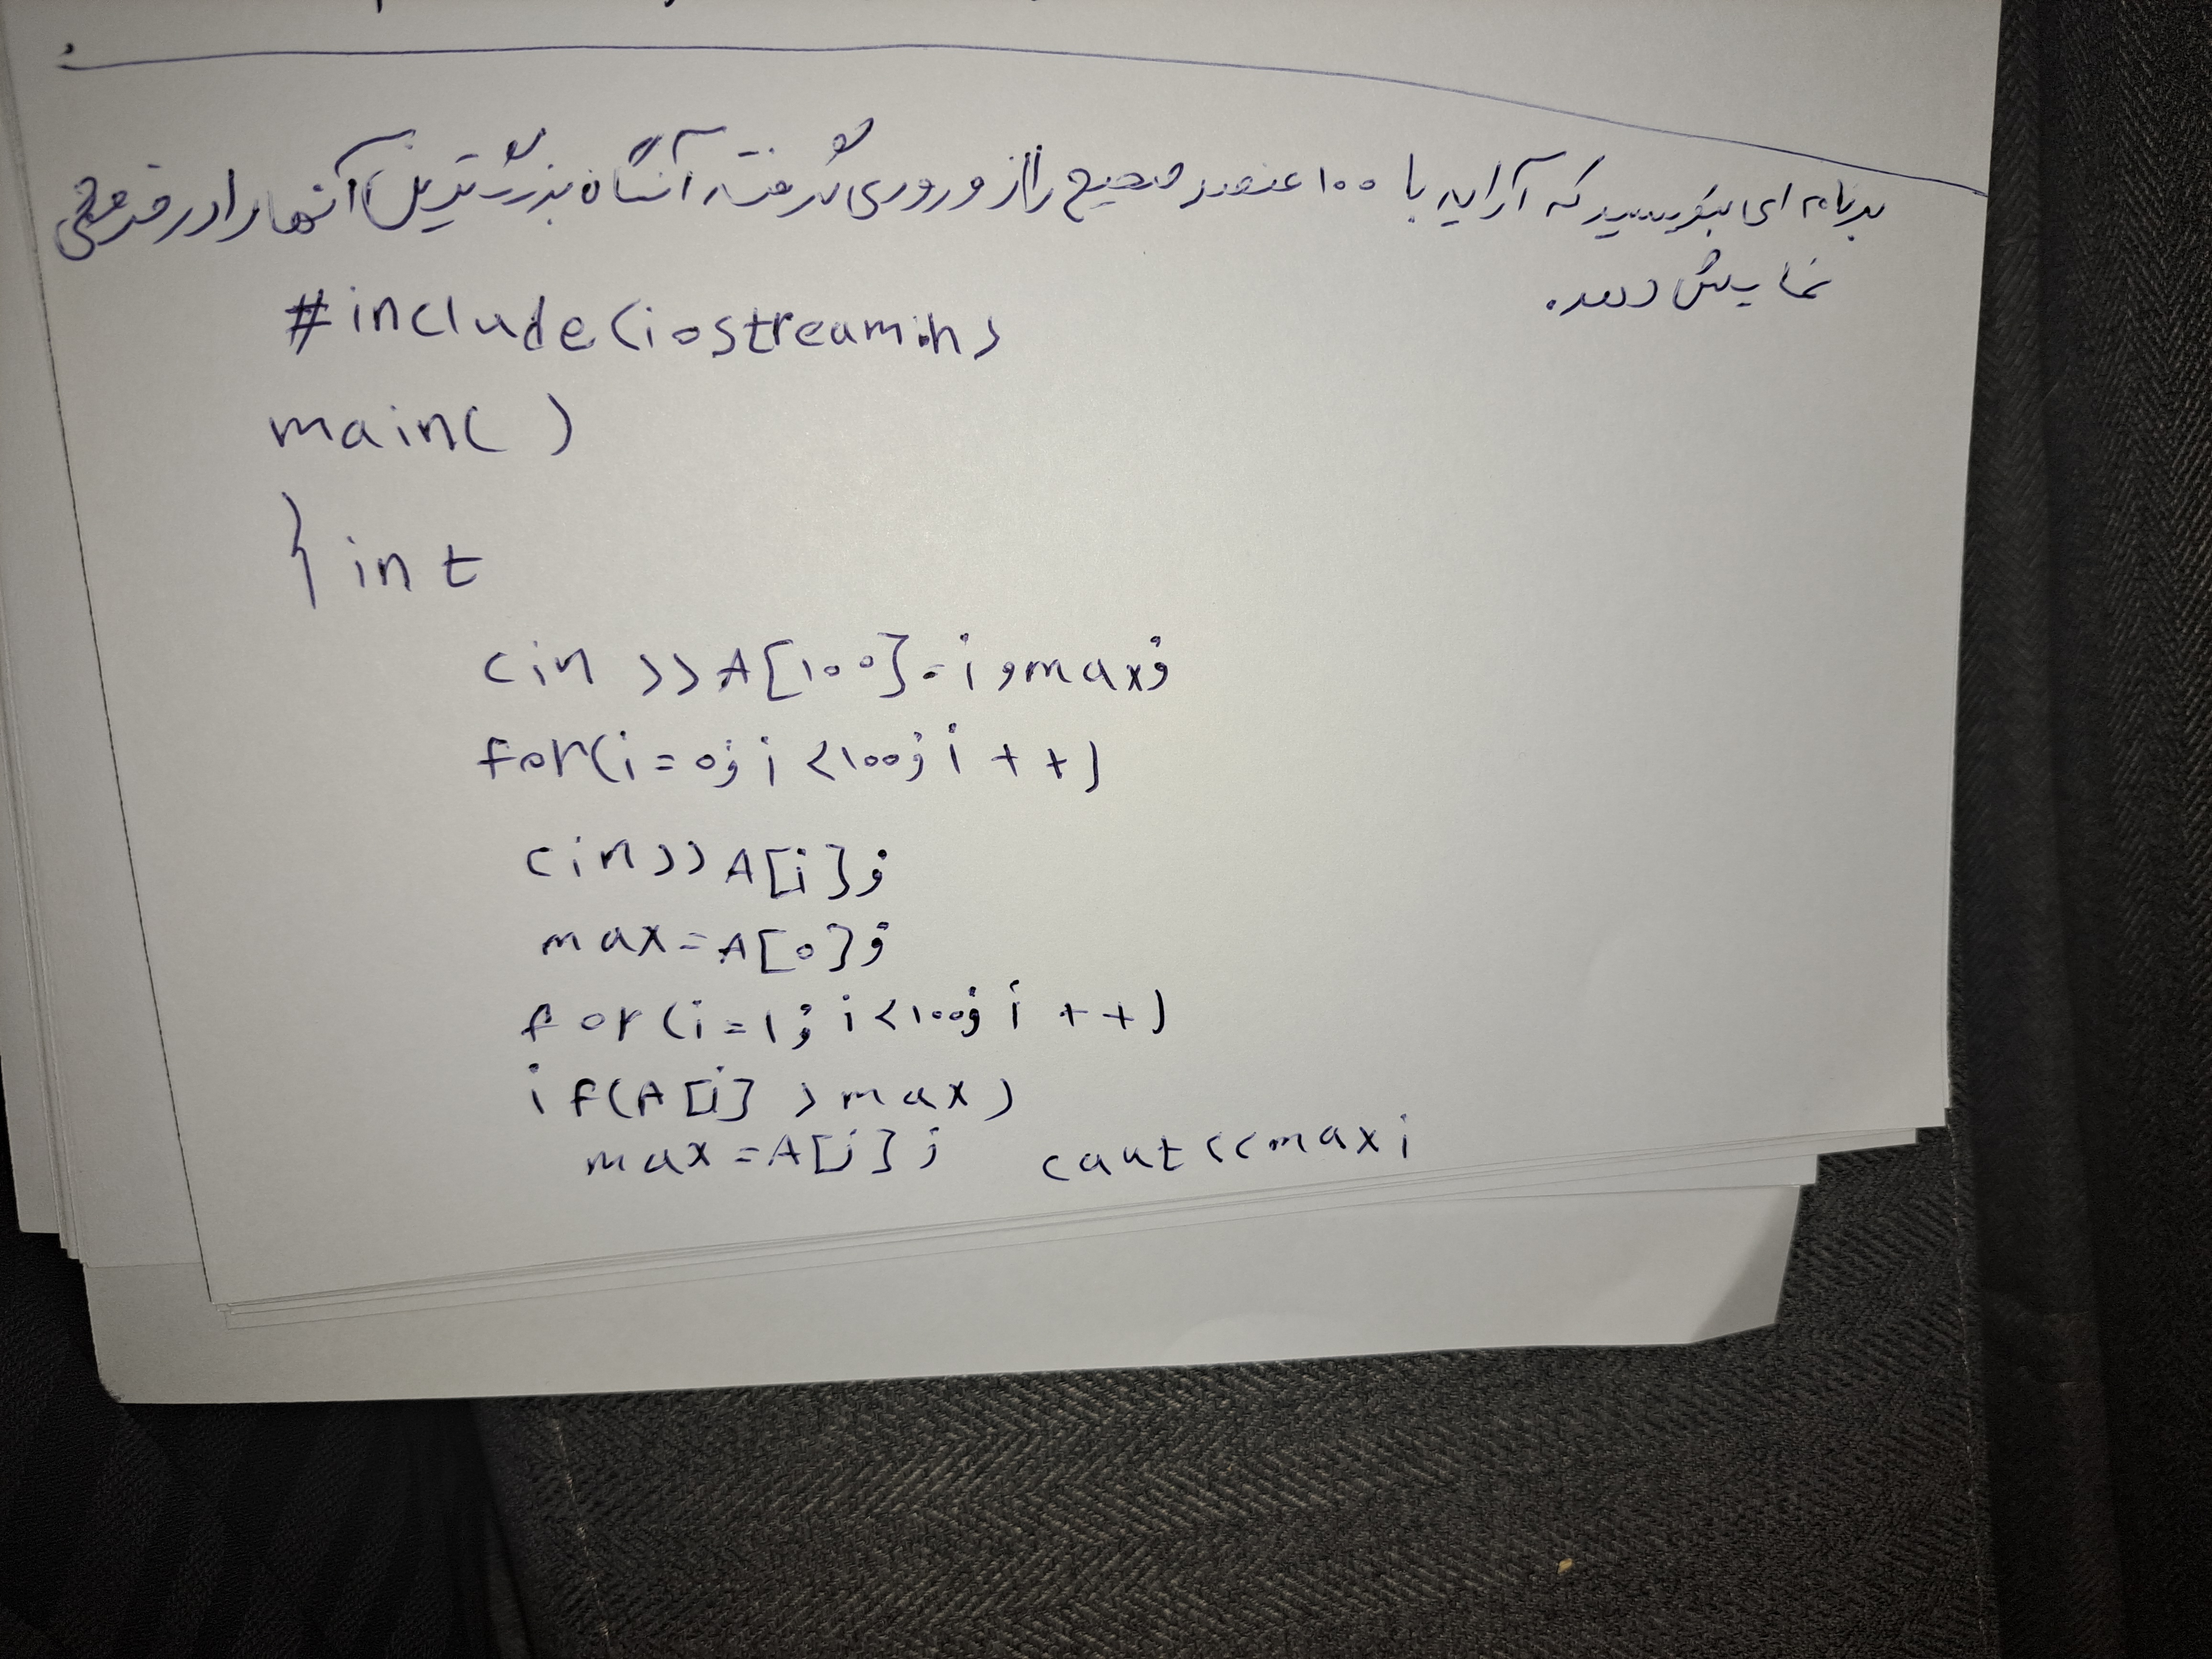 برنامه ای بنویسید که آرایه با ۱۰۰ عنصر صحیح را از ورودی گرفته آنگاه بزرگترین آنها را در خروجی
نمایش دهد.
#include(iostreamih>
main()
{ int
cin >>A[100}-i,max;
for(i=0;i<100;i++)
cin>>A[i};
max=A[0};
for(i=1;i<100;i++)
if(A[i}>max)
max=A[i}; caut<<maxi